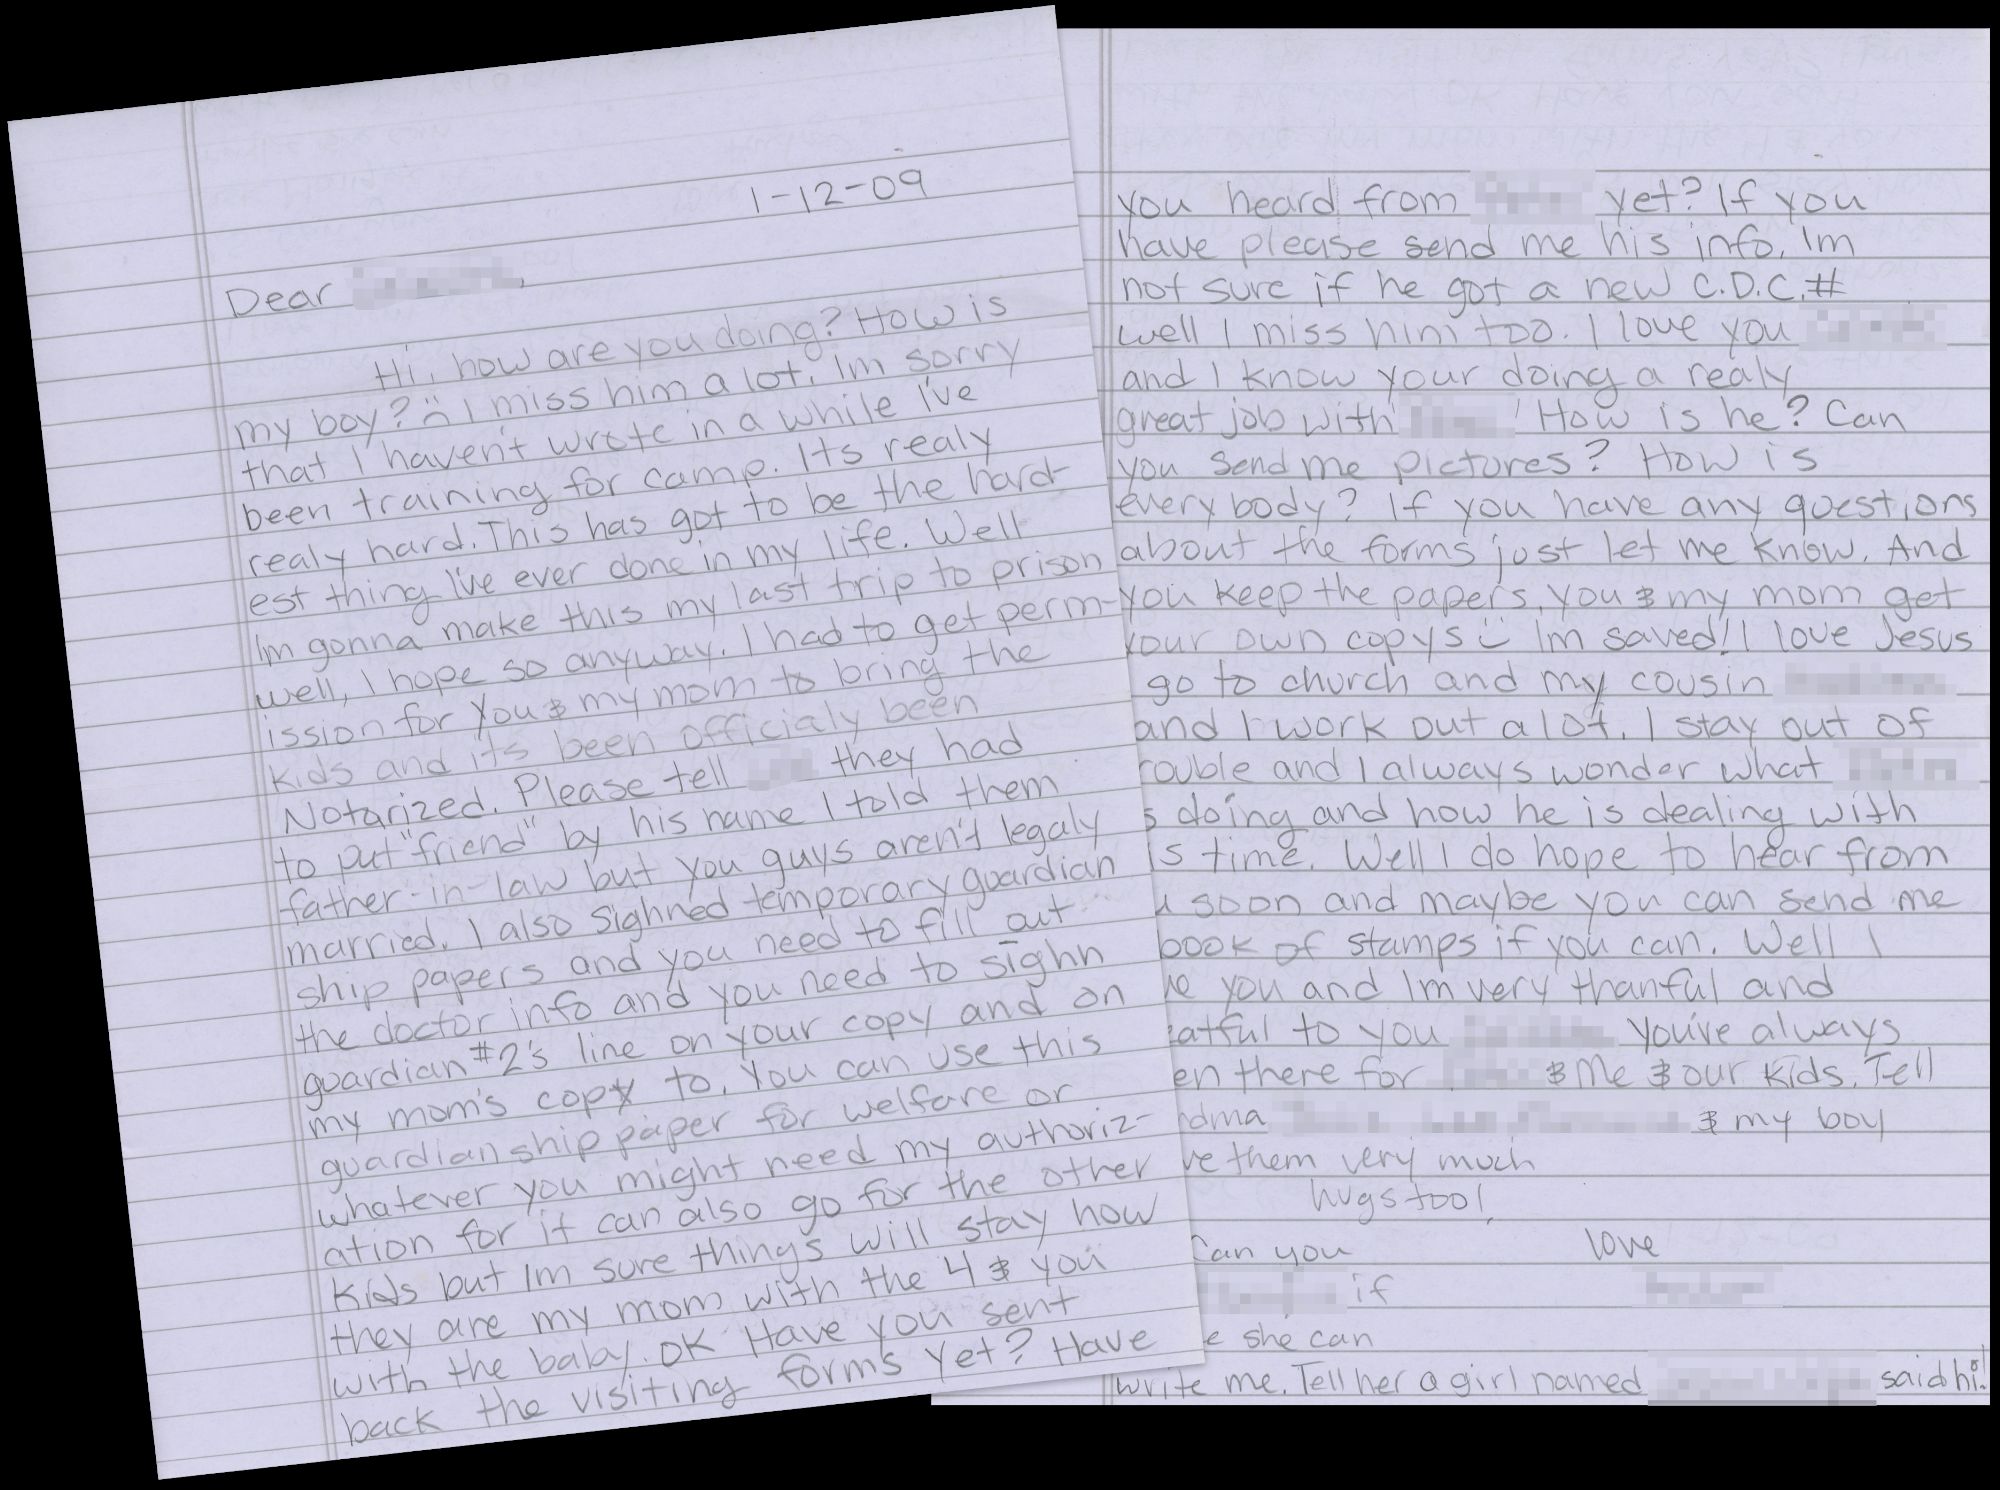 1-12-09
Dear
Hi, how are you doing? How is
my boy? I miss him a lot. Im sorry
that I haven't wrote in a while I've
been training for camp. Its realy
realy hard. This has got to be the hard-
est thing I've ever done in my life. Well
Im gonna make this my last trip to prison
well, I hope so anyway. I had to get perm-
ission for you & my mom to bring the
kids and its been officialy been
Notarized. Please tell they had
to put "friend" by his name I told them
father-in-law but you guys aren't legaly
married. I also sighned temporary guardian
ship papers and you need to fill out
the doctor info and you need to sighn
guardian #2's line on your copy and on
my mom's copy to. You can use this
guardianship paper for welfare or
whatever you might need my authoriz-
ation for it can also go for the other
kids but Im sure things will stay how
they are my mom with the 4 & you
with the baby. OK Have you sent
back the visiting forms yet? Have
you heard from yet? If you
have please send me his info. Im
not sure if he got a new C.D.C.#
well I miss him too. I love you
and I know your doing a realy
great job with How is he? Can
you send me pictures? How is
every body? If you have any questions
about the forms just let me know. And
you keep the papers, you & my mom get
your own copys Im saved! I love Jesus
go to church and my cousin
and I work out a lot. I stay out of
rouble and I always wonder what
s doing and how he is dealing with
is time. Well I do hope to hear from
u soon and maybe you can send me
book of stamps if you can. Well I
ve you and Im very thanful and
eatful to you you've always
en there for & Me & our kids. Tell
ndma & my boy
ve them very much
hugs too!
Can you
love
if
e she can
write me. Tell her a girl named said hi!